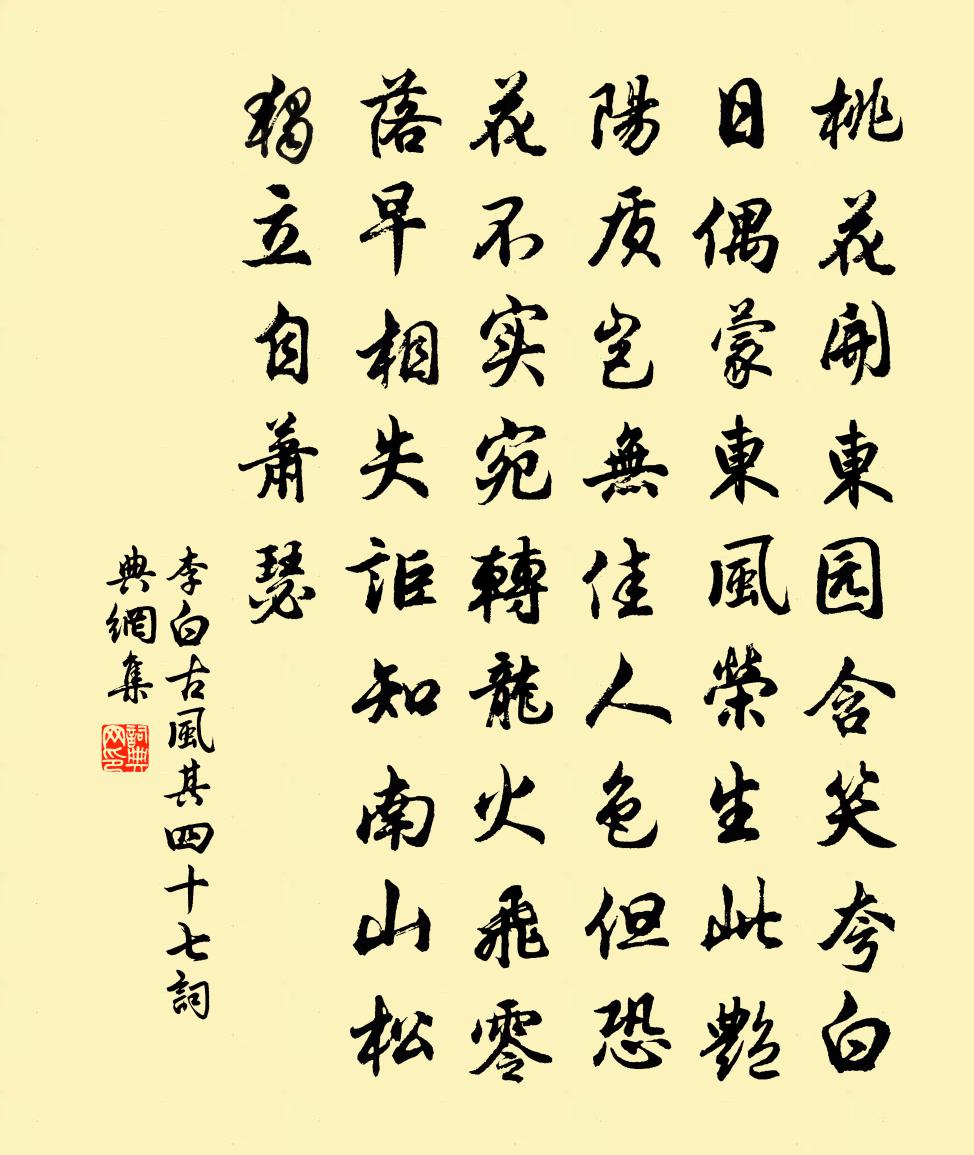 桃花開東园含笑夸白
日偶蒙東風榮生此艷
陽质岂無佳人色但恐
花不实宛轉龍火飛零
落早相失詎知南山松
獨立自萧瑟
李白古風其四十七詞
典網集
詞典网印